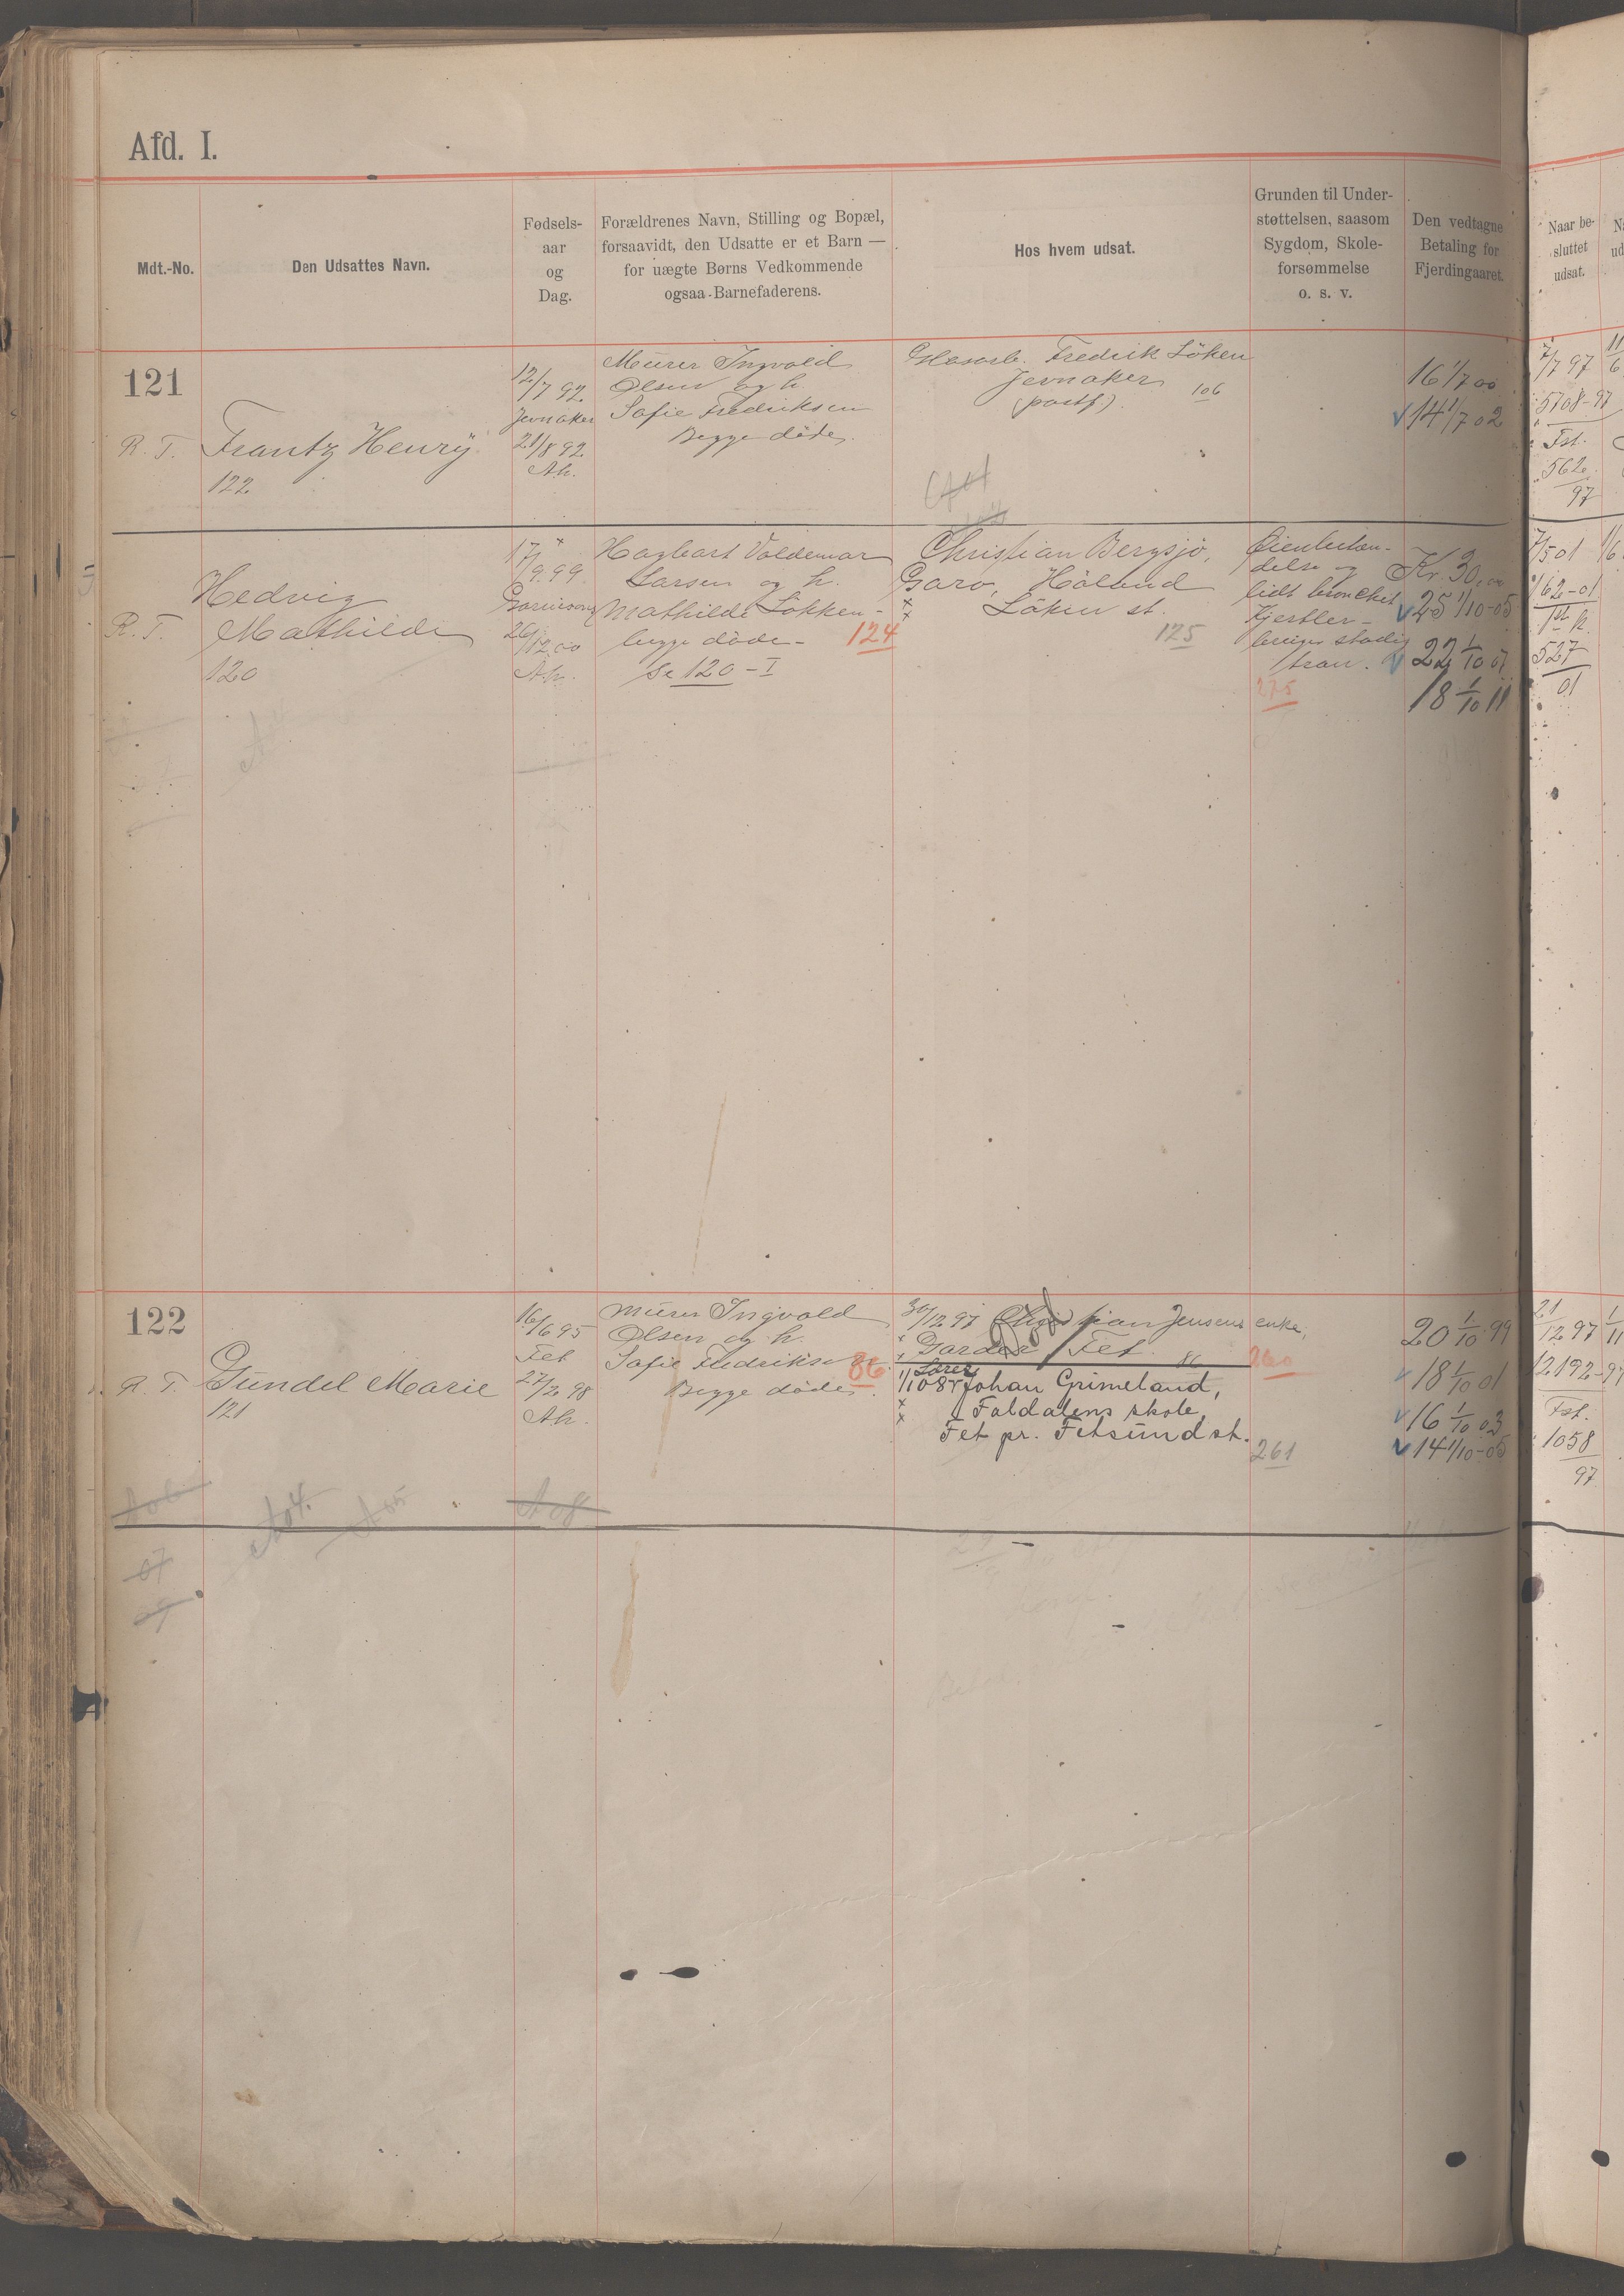 Afd. I.
Mdt.-No.
Den Udsattes Navn.
Fødsels-
aar
og
Dag.
Forældrenes Navn, Stilling og Bopæl,
forsaavidt, den Udsatte er et Barn —
for uægte Børns Vedkommende
ogsaa Barnefaderens.
Hos hvem udsat.
Grunden til Under-
støttelsen, saasom
Sygdom, Skole-
forsømmelse
o. s. v.
Den vedtagne
Betaling for
Fjerdingaaret.
Naar be-
sluttet
udsat.
121
R. T. Frantz Henry
122
12/7 92
Jevnaker
21/8 92
Ak.
Murer Ingvald
Olsen og h.
Sofie Fredriksen
Begge döde.
Glasarb. Fredrik Löken
Jevnaker
(postf.).
106
16 1/7 00
14 1/7 02
7/7 97
5708-97
Fst.
562
97
Hedvig
R. T. Mathilde
120
17/9 99
Garnisons
26/12 00
Ak.
Hagbart Valdemar
Larsen og h.
Mathilde Lökken
begge döde -
Se 120 - I
124
Christian Bergsjö,
Garo, Höland
Löken st.
125
delse og
lidt
Kjertler-
stadig
tran.
275
Kr. 30,00
25 1/10-05
22 1/10 07
18 1/10 11
7/5 01
162-01
527
01
122
R. T. Gundel Marie
121
16/6 95
Fet
27/2 98
Ak.
Murer Ingvald
Olsen og h.
Sofie Fredriksen
Begge döde.
86
30/12 97 Christian Jensens enke,
Garder Fet
86
260
Lærer
1/10 08 Johan Grimeland,
Faldalens skole
Fet pr. Fetsund st.
261
20 1/10 99
18 1/10 01
16 1/10 03
14 1/10-05
21
12 97
12192-97
Fst.
1058
97